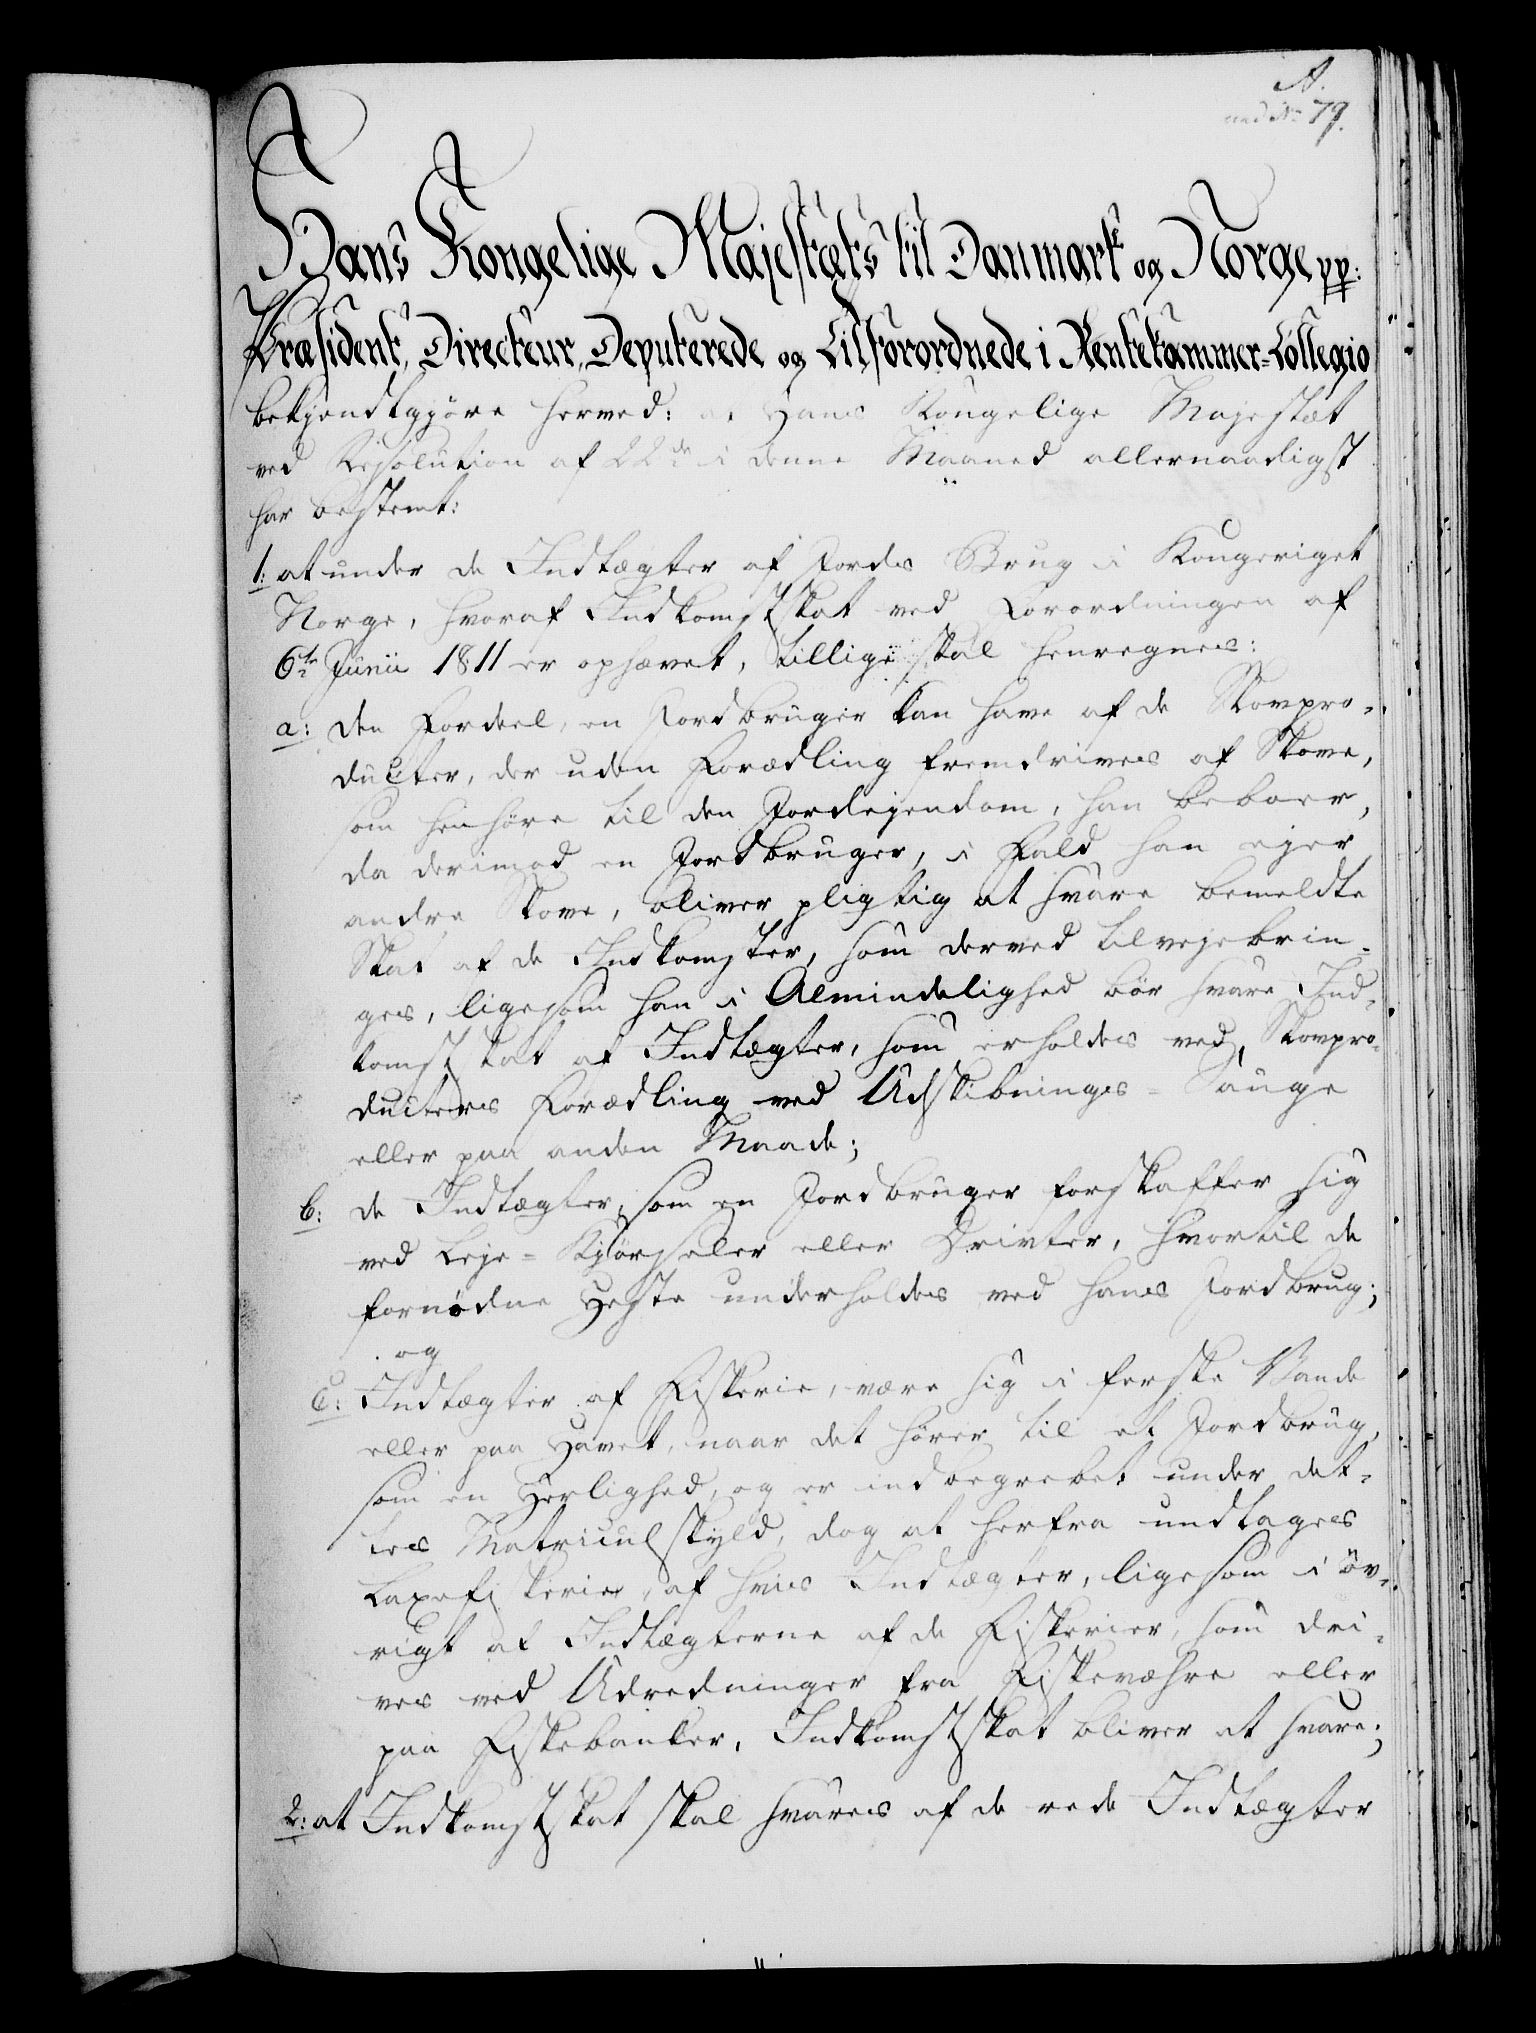 A.
ad No 79.
Hans Kongelige Majestæts til Danmark og Norge pp:
Præsident, Directeur, Deputerede og Tilforordnede i Rentekammer-Collegio
bekjendtgjøre herved: at Hans Kongelige Majestæt
ved Resolution af 22de i denne Maaned allernaadigst
har bestemt:
1: at under de Indtægter af Jords Brug i Kongeriget
Norge, hvoraf Indkomstskat ved Forordningen af
6te Junii 1811 er ophævet, tillige skal henregnes:
a: den Fordeel, en Jordbruger kan have af de Skovpro-
ducter, der uden Forædling fremdrives af Skove,
som henhøre til den Jordejendom, han beboer,
da derimod en Jordbruger, i Fald han ejer
andre Skove, bliver pligtig at svare bemeldte
Skat af de Indkomster, som derved tilvejebrin-
ges, ligesom han i Almindelighed bør svare Ind-
komstskat af Indtægter, som erholdes ved Skovpro-
ducters Forædling ved Udskibnings- Sauge
eller paa anden Maade;
b: de Indtægter, som en Jordbruger forskaffer sig
ved Leje-Kjørseler eller Drivter, hvortil de
fornødne Heste underholdes ved hans Jordbrug;
og
c: Indtægter af Fiskerie, være sig i ferske Vande
eller paa Havet, naar det hører til et Jordbrug,
som en Herlighed, og er indbegrebet under det-
tes Matriculskyld, dog at herfra undtages
Laxefiskerier, af hvis Indtægter, ligesom i øv-
rigt af Indtægterne af de Fiskerier, som dri-
ves ved Udredninger fra Fiskevæhre eller
paa Fiskebanker, Indkomstskat bliver at svare;
2: at Indkomstskat skal svares af de rede Indtægter